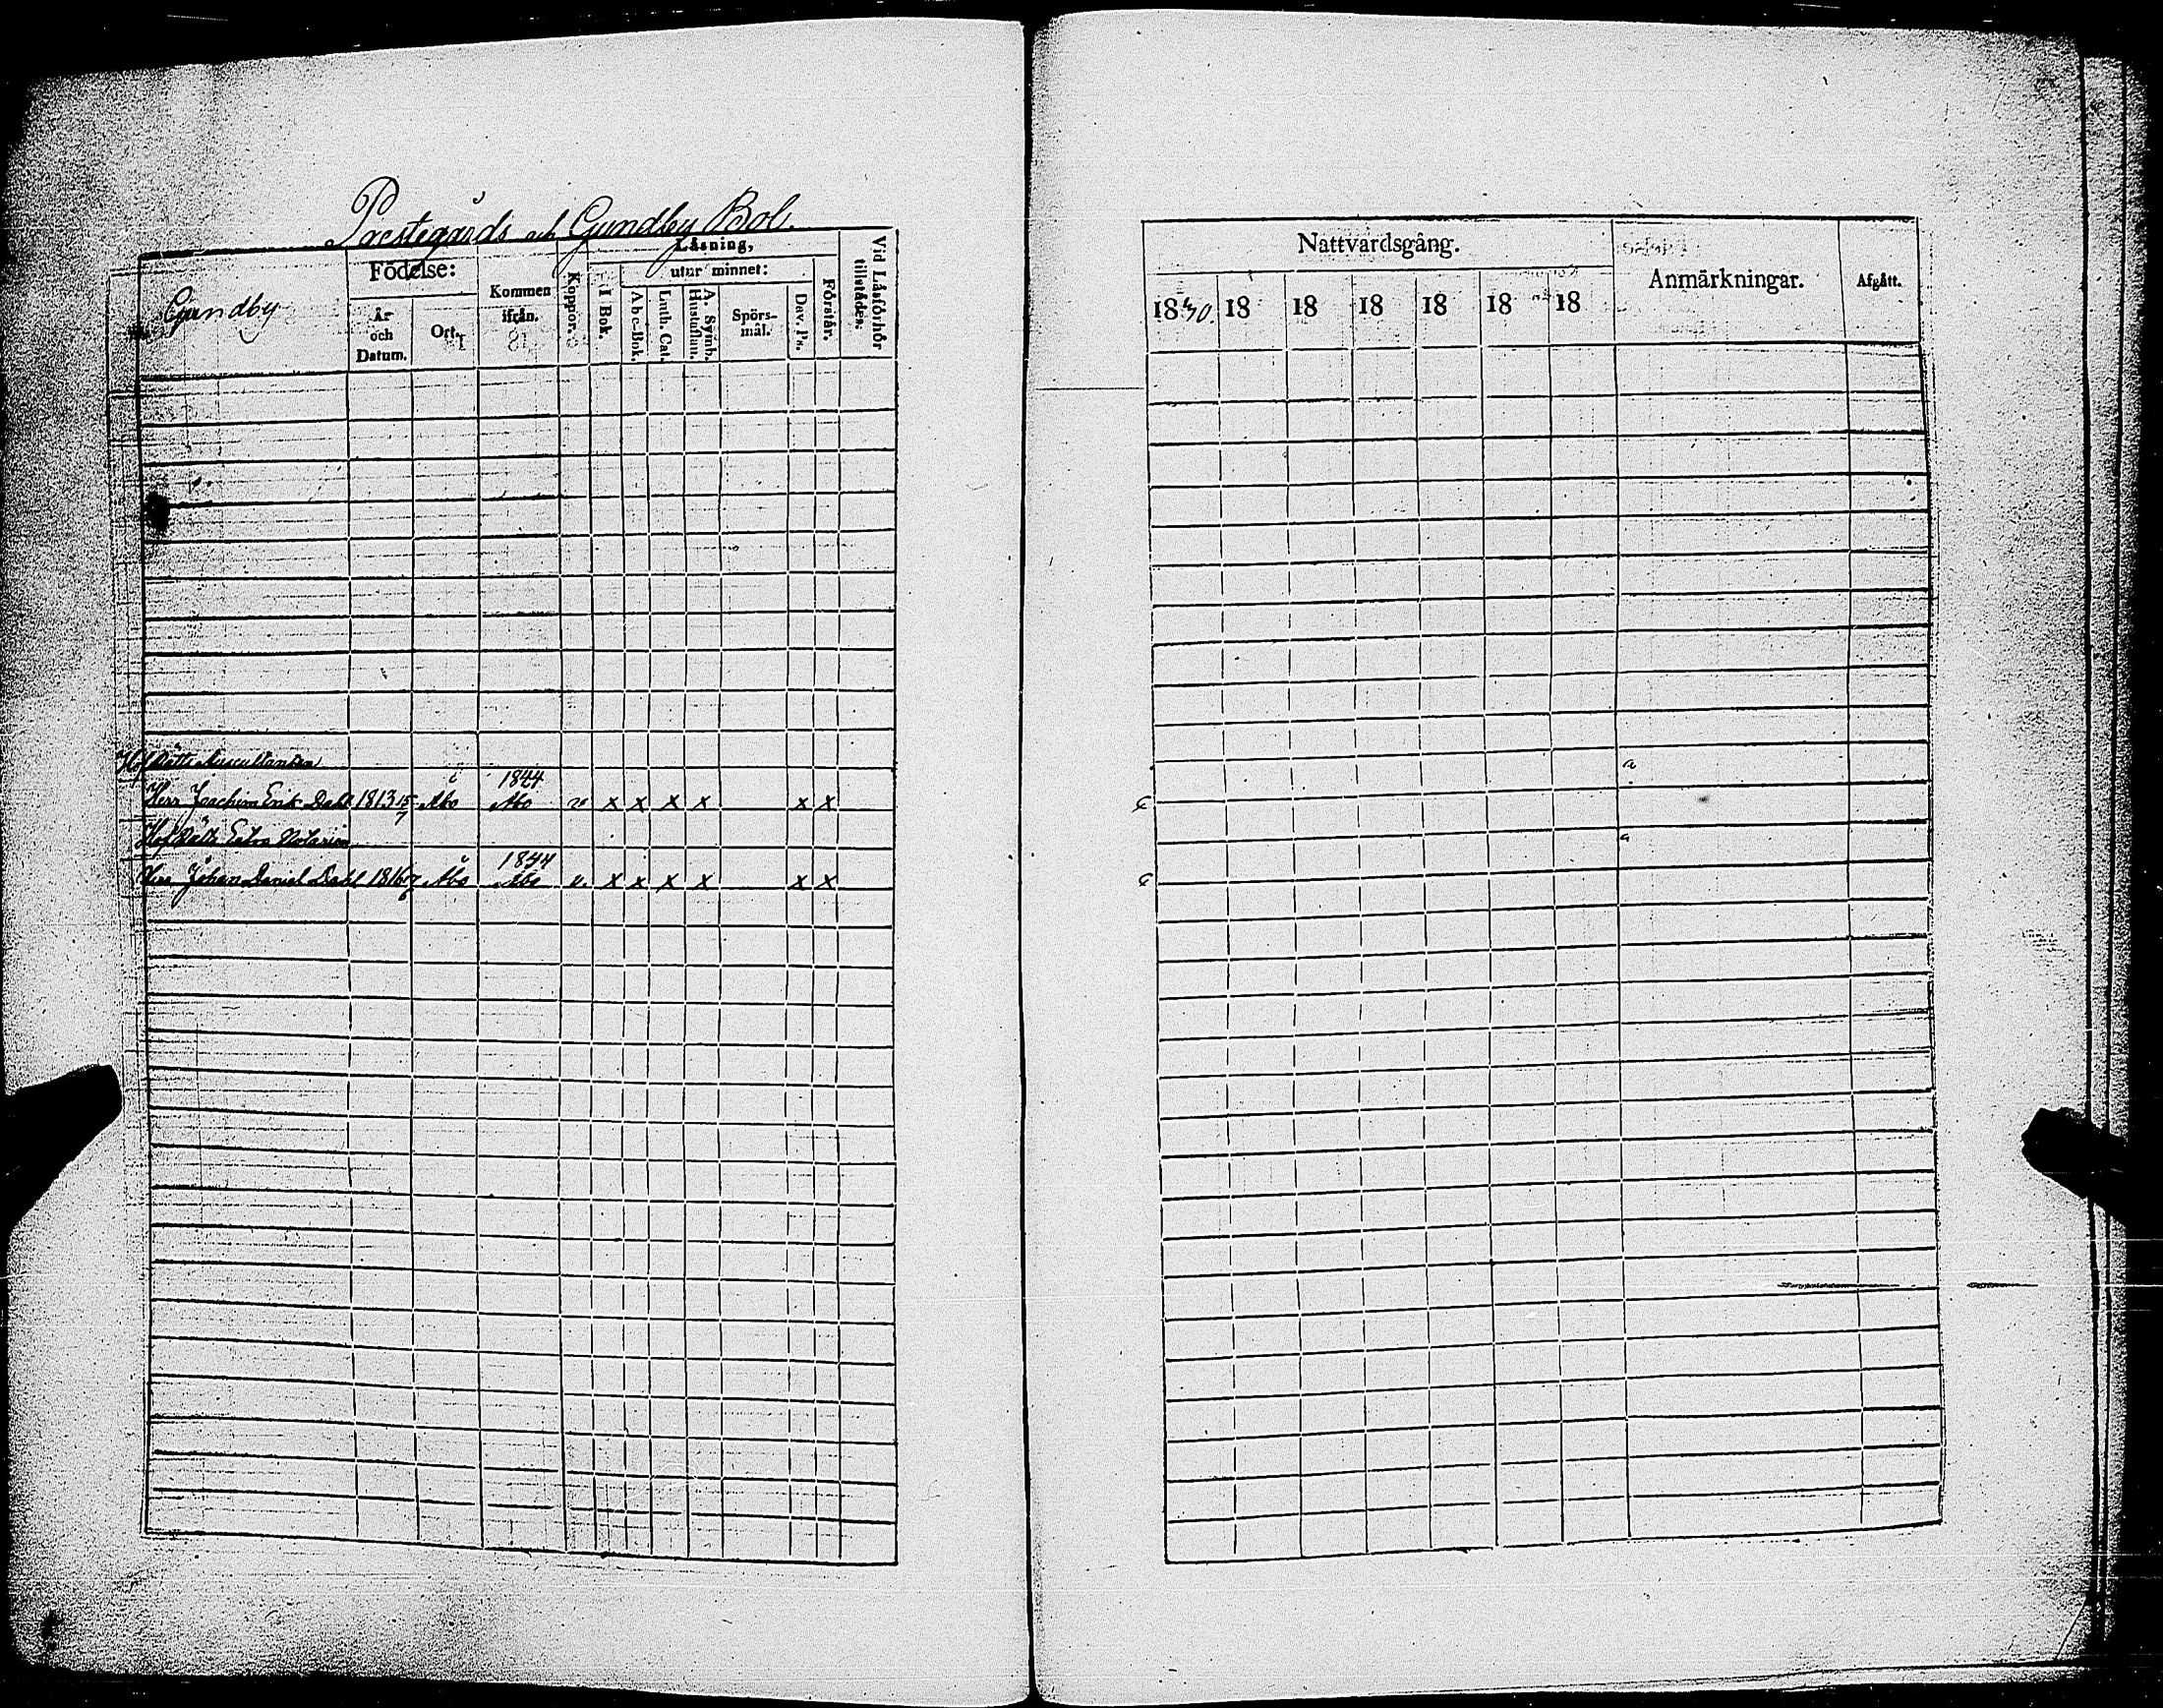 Prestegårds och Gundby Bol.
Gundby
Födelse:
År och Datum.
Ort.
Kommen ifrån.
Koppor.
Läsning,
I Bok.
utur minnet:
Abc-Bok.
Luth. Cat.
A. Symb. Hustaflan.
Spörs-mål.
Dav. Ps.
Förstår.
Vid Läsförhör tillstädes.
Nattvardsgång.
1830. 18 18 18 18 18 18
Anmärkningar.
Afgått.
Hof Rätts Auscultanten
1844
Herr Joachim Erik Dahl 1813 15/7 Åbo Åbo v x x x x x x
Hof Rätts Extra Notarien
1844
Herr Johan Daniel Dahl 1816 Åbo Åbo v. x x x x x x